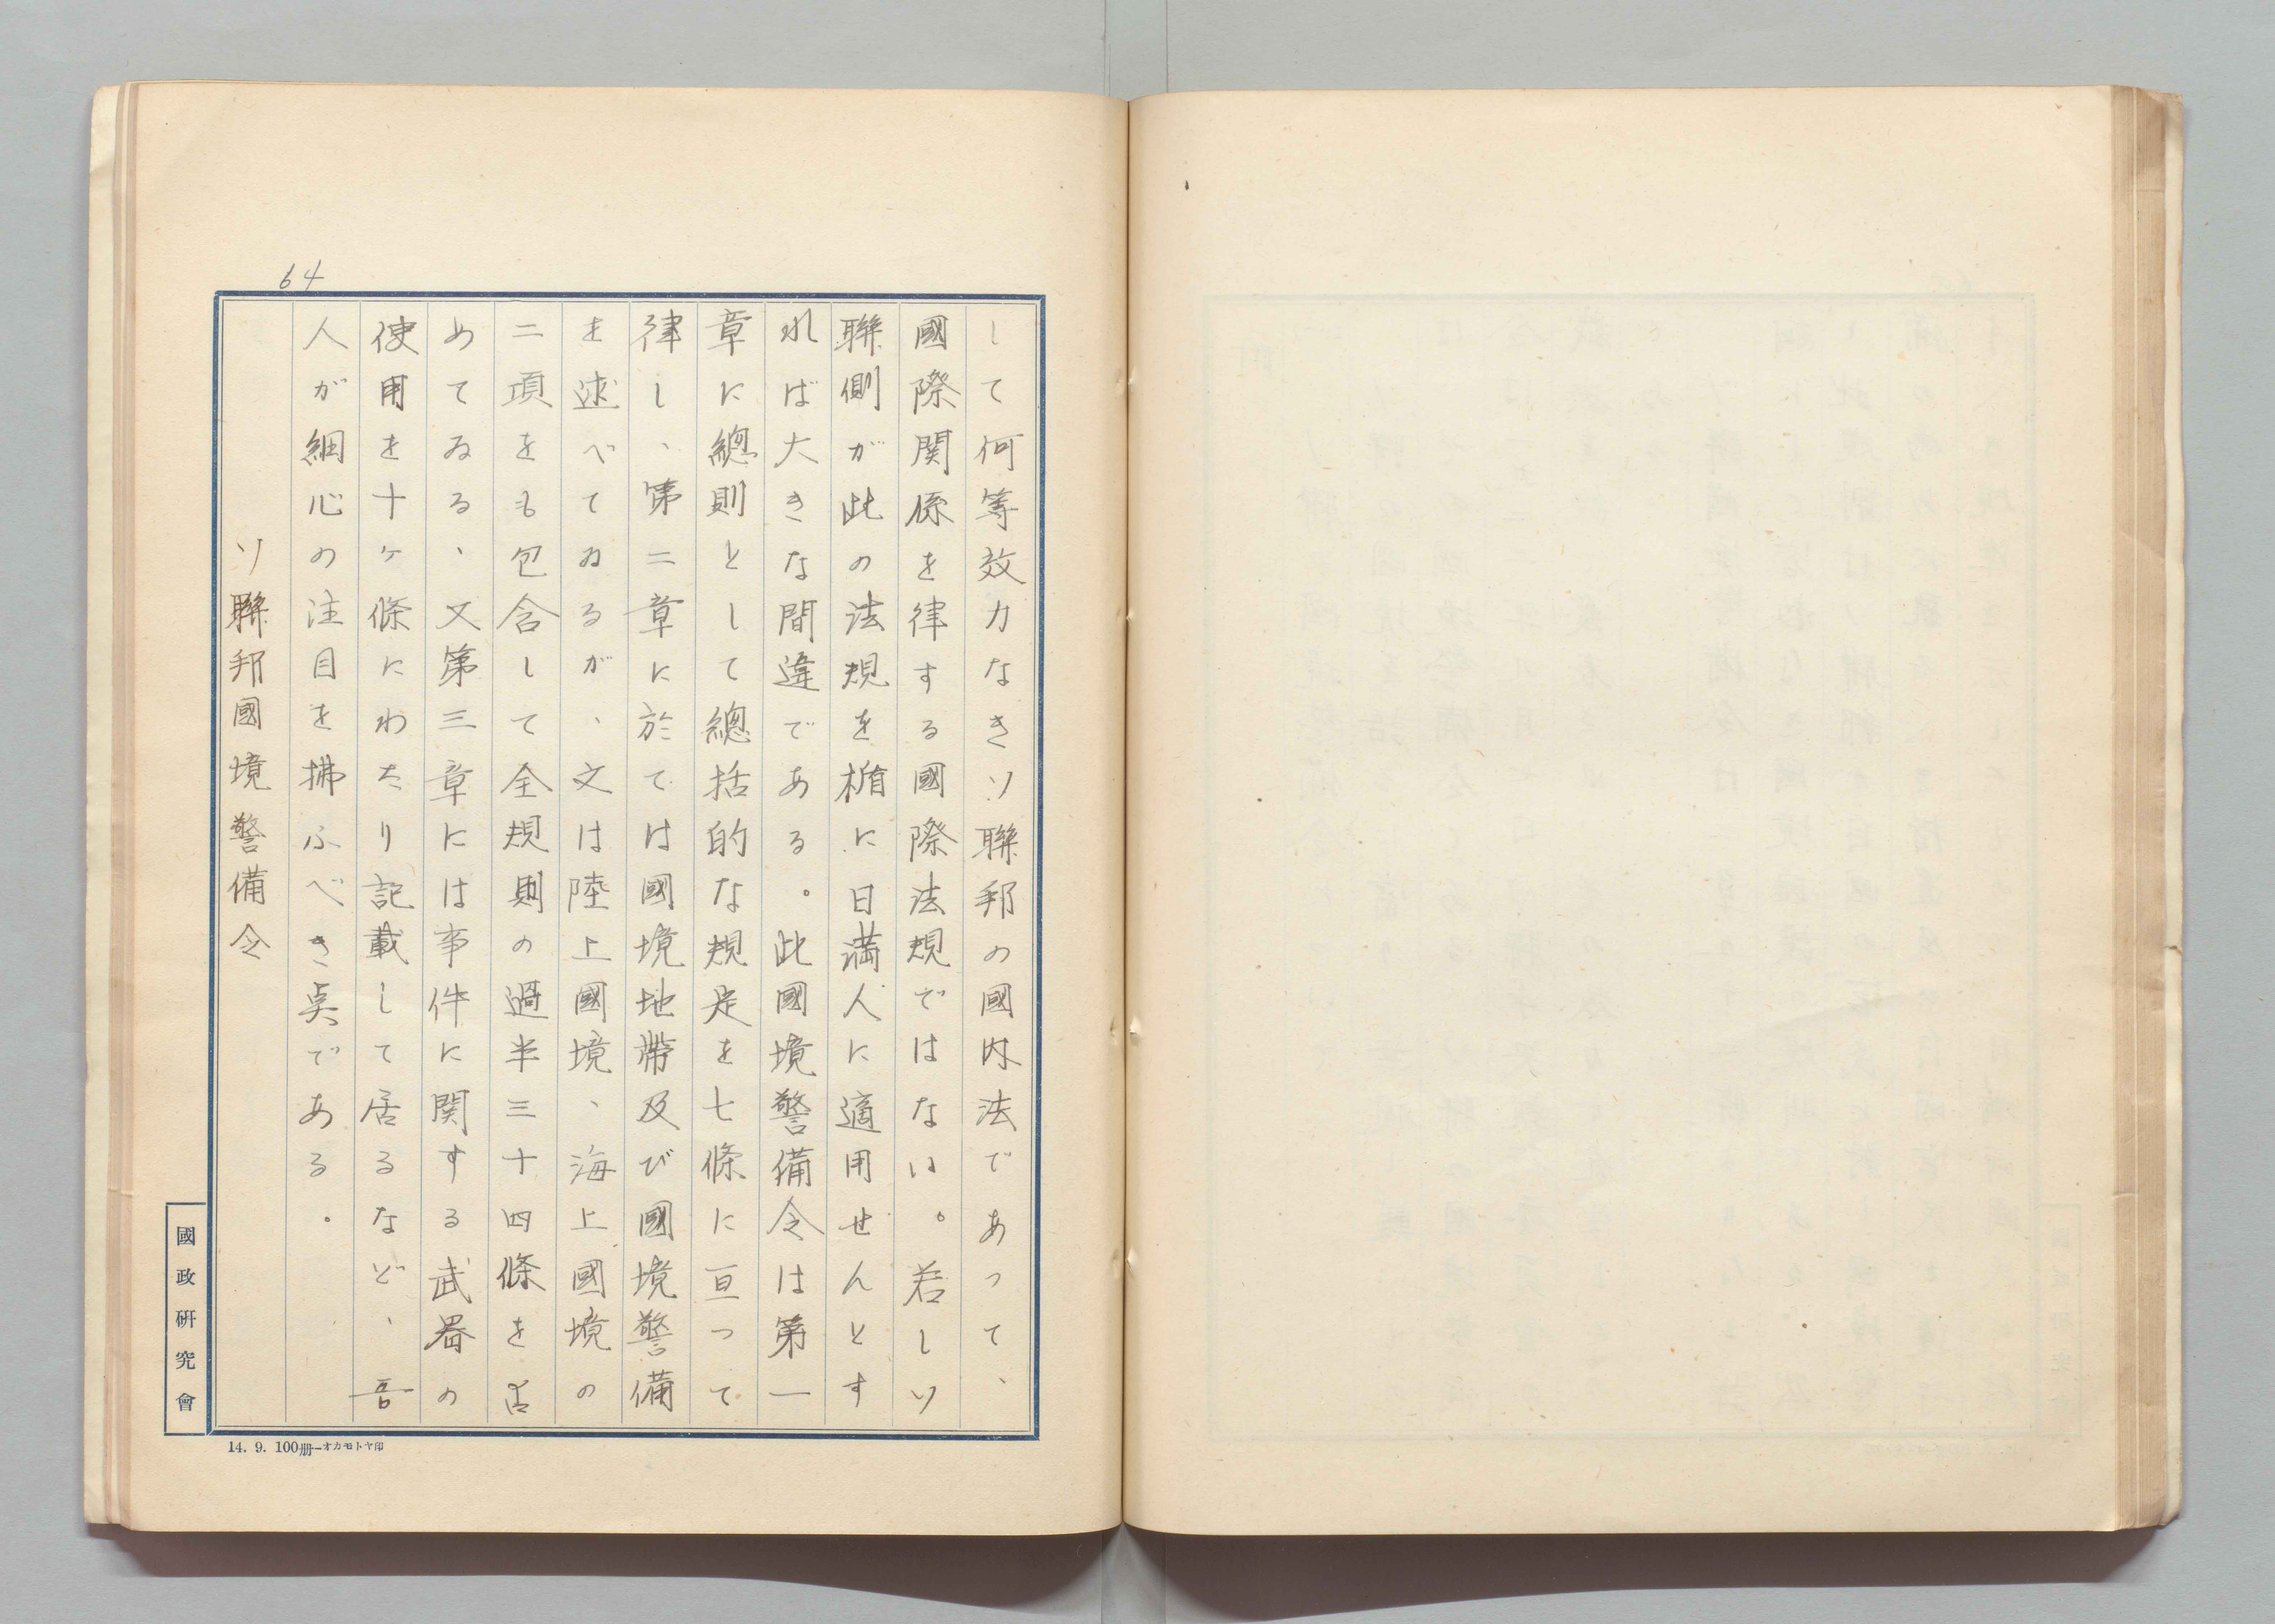 64
して何等效力なきソ聯邦の國内法であつて、
國際関係を律する國際法規ではない。若しソ
聯側が此の法規を楯に日満人に適用せんとす
れば大きな間違である。此國境警備令は第一
章に總則として總括的な規定を七條に亘つて
律し、第二章に於ては國境地帶及び國境警備
を述べてゐるが、文は陸上國境、海上國境の
二項をも包含して全規則の過半三十四條を占
めてゐる、又第三章には事件に関する武器の
使用を十ヶ條にわたり記載して居るなど、吾
人が細心の注目を拂ふべき点である。
ソ聯邦國境警備令
國政研究會
14. 9. 100册—オカモトヤ印